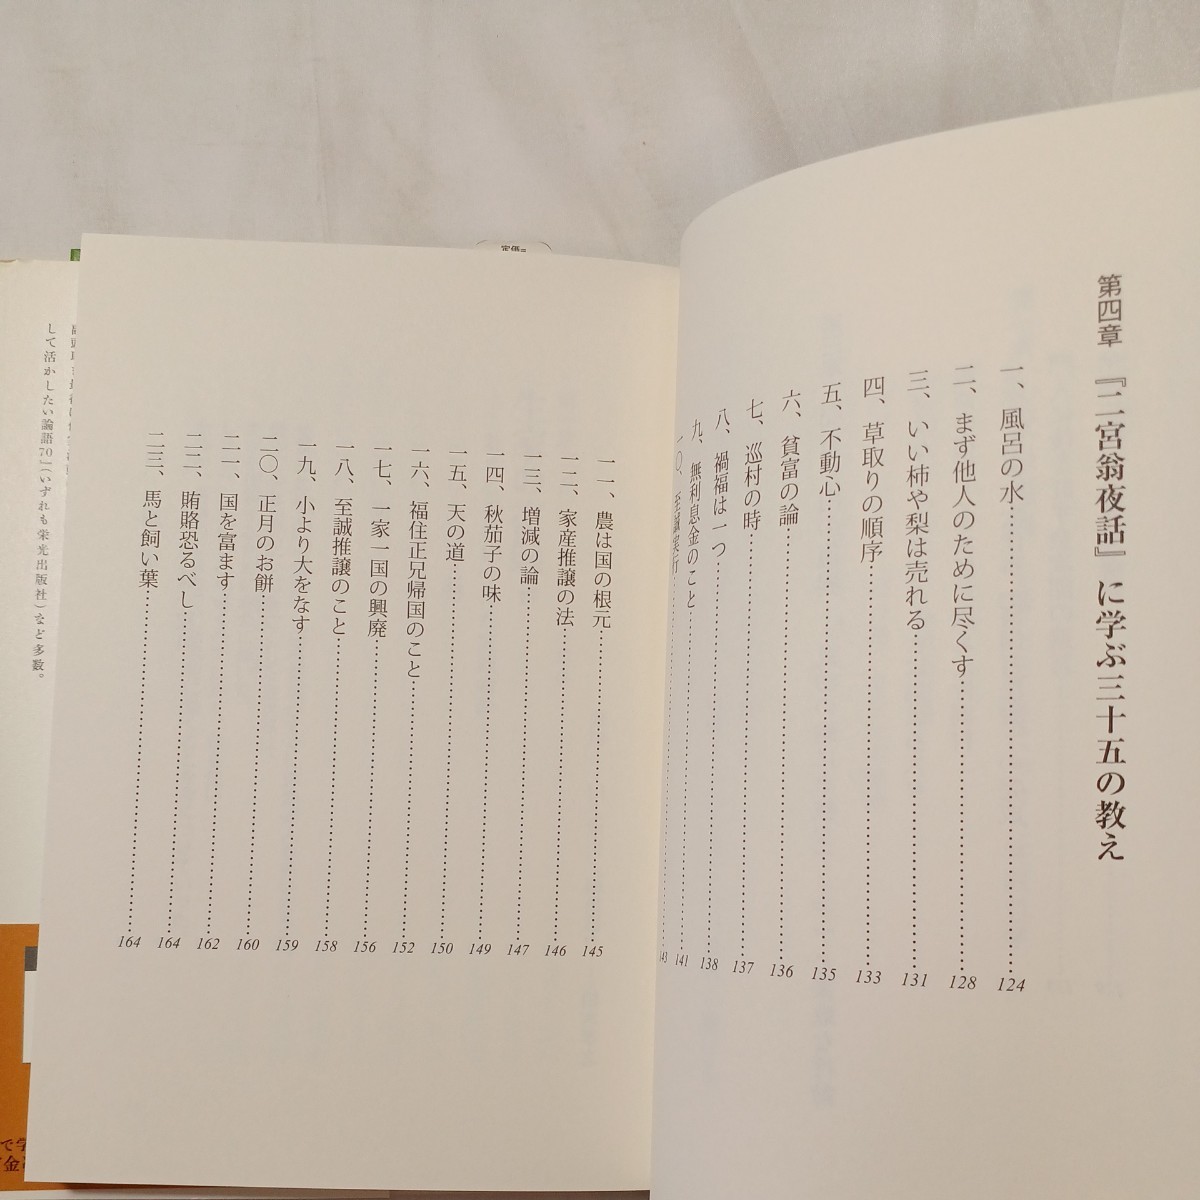 第四章 『二宮翁夜話』に学ぶ三十五の教え
一、風呂の水 124
二、まず他人のために尽くす 128
三、いい柿や梨は売れる 131
四、草取りの順序 133
五、不動心 135
六、貧富の論 136
七、巡村の時 137
八、禍福は一つ 138
九、無利息金のこと 141
一〇、至誠実行 143
一一、農は国の根元 145
一二、家産推譲の法 146
一三、増減の論 147
一四、秋茄子の味 149
一五、天の道 150
一六、福住正兄帰国のこと 152
一七、一家一国の興廃 156
一八、至誠推譲のこと 158
一九、小より大をなす 159
二〇、正月のお餅 160
二一、国を富ます 162
二二、賄賂恐るべし 164
二三、馬と飼い葉 164
して活かしたい論語70』（いずれも栄光出版社）など多数。
定価＝
で学